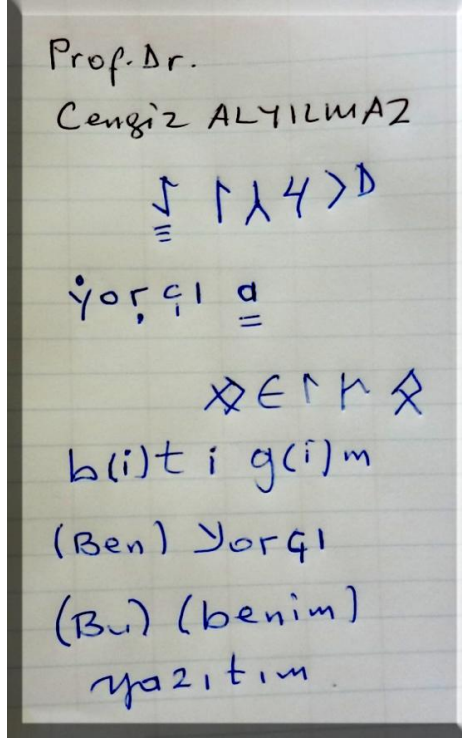 Prof. Dr.
Cengiz ALYILMAZ
𐰖𐰆𐰺𐰲𐰃 𐰀
yorçı a
𐰋𐱅𐰃𐰏𐰢
b(i)t i g(i)m
(Ben) Yorçı
(Bu) (benim)
yazıtım.